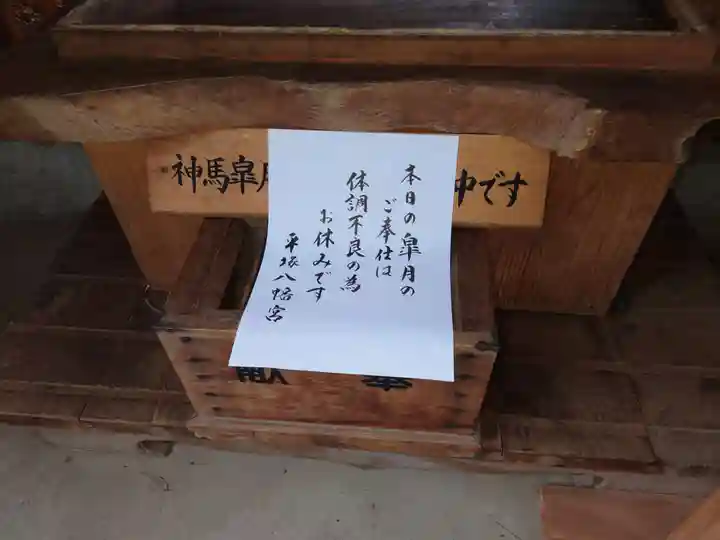 本日の皐月の
ご奉仕は
体調不良の為
お休みです
平塚八幡宮
神馬皐月
中です
奉
献